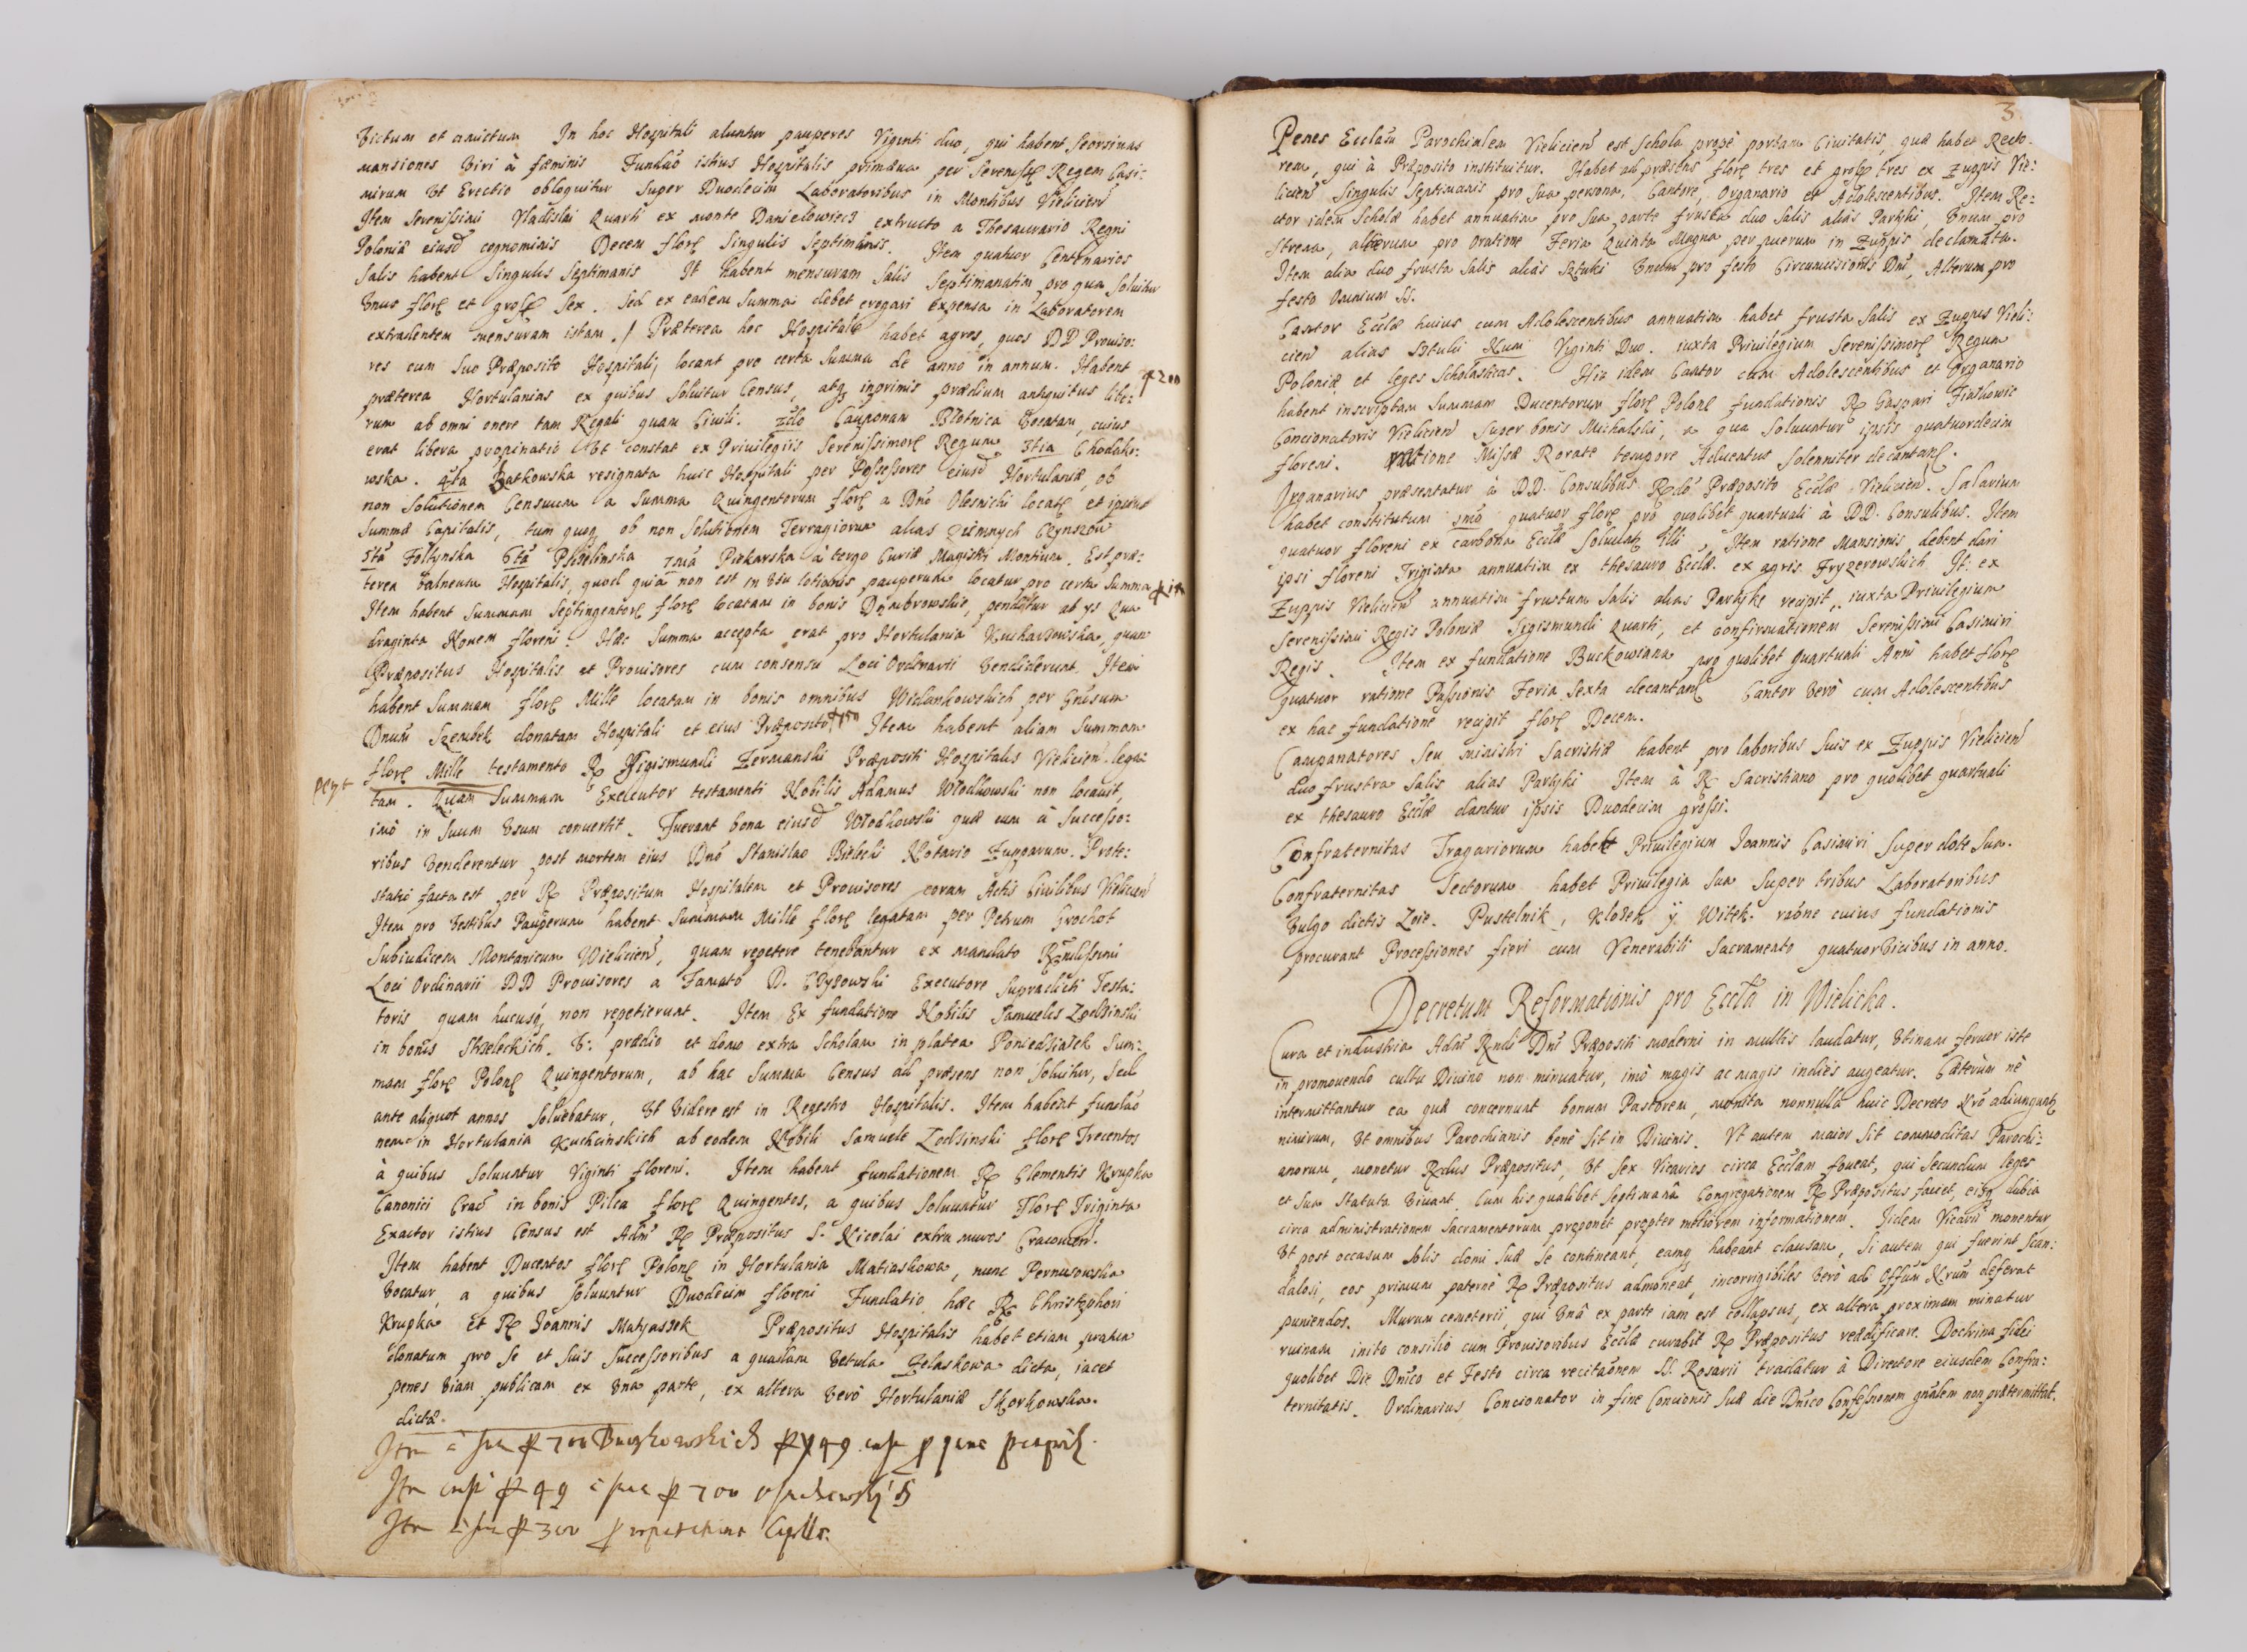 Victum et amictum In hoc Hospitali aluntur pauperes Viginti duo, qui habent Seorsinas
mansiones Viri à fæminis Fundaõ istius Hospitalis primæua per Serenissẽ Regem Casi:
mirum Vt Erectio obloquitur Super Duodecim Laboratoribus in Montibus Vielicien̄
Item Serenissimi Vladislai Quarti ex monte Danielowicz extructo a Thesaurario Regni
Poloniæ eiusd cognominis Decem flore Singulis Septimanis. Item quatuor Centenarios
Salis habent Singulis Septimanis It habent mensuram Salis Septimanatim pro qua Soluitur
Vnus flore et grosse Sex. Sed ex eadem Summa debet erogari Expensa in Laboratorem
extradentem mensuram istam ./ Præterea hoc Hospitale habet agros, quos DD Prouiso:
res cum Suo Præposito Hospitali, locant pro certa Summa de anno in annum. Habent
præterea Hortulanias ex quibus Soluitur Census, atq; inprimis prædium antiquitus libe:
rum ab omni onere tam Regali quam Ciuili. 2do Cauponam Blotnica Vocatam, cuius
erat libera propinatio Vt constat ex Priuilegiis Serenissimore Regum 3tia Chodako:
wska. 4ta Batkowska resignata huic Hospitali per Possessores eiusd Hortulaniæ, ob
non Solutionem Censuum a Summa Quingentorum flore a Dnõ Olesnicki locate et ipsius
Summæ Capitalis, tum quoq; ob non Solutionem Terragiorum alias Ziemnych Czynszow
5tã Foltynska 6tã Psebelinska 7mã Piekarska a tergo Curiæ Magistri Montium. Est præ:
terea balneum Hospitalis, quod quia non est in Vsu lotionis pauperum locatur pro certa Summa
Item habent Summam Septingentore flore locatam in bonis Dombrowskie, penditur ab ys Qua
draginta Nouem floreni. Hæc Summa accepta erat pro Hortulania Kucharzowska, quam
Præpositus Hospitalis et Prouisores cum consensu Loci Ordinarii Vendiderunt. Item
habent Summam flore Mille locatam in bonis omnibus Wielunkowskich per Gnẽsum
Dnum Szembek donatam Hospitali et eius Præposito Item habent aliam Summam
flore Mille testamento R Sigismundi Zermanski Præpositi Hospitalis Vielicien lega:
tam. Quam Summam Executor testamenti Nobilis Adamus Wlodkowski non locauit,
imò in Suum Vsum conuertit. Fuerant bona eiusd Wlodkowski quæ cum à Successo:
ribus Venderentur post mortem eius Dnõ Stanislao Bielecki Notario Zupparum. Prote:
statio facta est per R Præpositum Hospitalem et Prouisores coram Actis Ciuilibus Vielicien
Item pro Vestibus Pauperum habent Summam Mille flore legatam per Petrum Grochot
Subiudicem Montanicum Wielicien̄, quam repetere tenebantur ex mandato Rndissimi
Loci Ordinarii DD Prouisores a Famato D. Executore Supradicti Testa:
toris quam hucusq; non repetierunt. Item Ex fundatione Nobilis Samuelis
in bonis Strzeleckich. V: prædio et domo extra Scholam in platea Poniedzialek Sum:
mam flore Polone Quingentorum, ab hac Summa Census ad præsens non Soluitur, Sed
ante aliquot annos Soluebatur, Vt Videre est in Regestro Hospitalis. Item habent fundaõ
nem in Hortulania Kuchcinskich ab eodem Nobili Samuele flore Trecentos
à quibus Soluuntur Viginti floreni. Item habent fundationem R Clementis Krupka
Canonici Craõ in bonis Pilca flore Quingentos, a quibus Soluuntur Flore Triginta
Exactor istius Census est Adm̃ R Præpositus S. Nicolai extra muros Cracouien.
Item habent Ducentos flore Polone in Hortulania Matiaskowa, nunc Pernusowska
Vocatur, a quibus Soluuntur Duodecim floreni Fundatio hæc R Christophori
Krupka et R Joannis Matyaszek Præpositus Hospitalis habet etiam pratum
donatum pro Se et Suis Successoribus a quadam Vetula Zelaskowa dicta, iacet
penes Viam publicam ex Vna parte, ex altera Verò Hortulaniæ Skorkowska
dictæ.
Penes Ecclãm Parochialem Vielicien̄ est Schola propè portam Ciuitatis, quæ habet Recto:
rem, qui à Præposito instituitur. Habet ad præsens flore tres et grosse tres ex Zuppis Vie:
licien̄ Singulis Septimanis pro Sua persona, Cantore, Organario et Adolescentibus. Item Re:
ctor idem Scholæ habet annuatim pro Sua parte frusta duo Salis aliàs Partyki, Vnum pro
Strena, alterum pro Oratione Feria Quinta Magna per puerum in Zuppis declamata.
Item alia duo frusta Salis aliàs Sztuki Vnum pro festo Circumcisionis Dni, Alterum pro
festo Omnium SS.
Cantor Ecclæ huius cum Adolescentibus annuatim habet frusta Salis ex Zuppis Vieli:
cien̄ alias Sztuki Num Viginti Duo. iuxta Priuilegium Serenissimore Regum
Poloniæ et leges Scholasticas. Hic idem Cantor cum Adolescentibus et Organario
habent inscriptam Summam Ducentorum flore Polone fundationis R Gaspari Fiatkowic
Concionatoris Vielicien̄ Super bonis Michalski, a qua Soluuntur ipsis quatuordecim
floreni. ratione Missæ Rorate tempore Aduentus Solenniter decantane.
Organarius præsentatur à DD. Consulibus Rdo Præposito Ecclæ Vielicien. Salarium
habet constitutum 1mo quatuor flore pro quolibet quartuali à DD. Consulibus. Item
quatuor floreni ex carbona Ecclæ Soluunt Illi, Item ratione Mansionis debent dari
ipsi floreni Triginta annuatim ex thesauro Ecclæ. ex agris Fryzerowskich It: ex
Zuppis Vielicien̄ annuatim frustum Salis alias Partykę recipit, iuxta Priuilegium
Serenissimi Regis Poloniæ Sigismundi Quarti, et confirmationem Serenissimi Casimiri
Regis. Item ex fundatione Buckowiana pro quolibet Quartuali Anni habet flore
quatuor ratione Passionis Feria Sexta decantane Cantor Verò cum Adolescentibus
ex hac fundatione recipit flore Decem.
Campanatores Seu ministri Sacristiæ habent pro laboribus Suis ex Zuppis Vielicien̄
duo frustra Salis alias Partyki Item à R Sacristiano pro quolibet quartuali
ex thesauro Ecclæ dantur ipsis Duodecim grossi.
Confraternitas Tragariorum habet Priuilegium Joannis Casimiri Super dote Sua.
Confraternitas Sectorum habet Priuilegia Sua Super tribus Laboratoribus
Vulgo dictis Zoie. Pustelnik, Kloske y Witek. raõne cuius fundationis
procurant Processiones fieri cum Venerabili Sacramento quatuor Vicibus in anno.
Decretum Reformationis pro Ecclã in Wielicka.
Cura et industria Adm̃ Rndi Dni Præpositi moderni in multis laudatur, Vtinam feruor iste
in promouendo cultu Diuino non minuatur, imò magis ac magis indiès augeatur. Cæterùm nè
intermittantur ea quæ concernunt bonum Pastorem, monita nonnulla huic Decreto Nrõ adiungunt
nimirum, Vt omnibus Parochianis benè Sit in Diuinis. Vt autem maior Sit commoditas Parochi:
anorum, monetur Rdus Præpositus, Vt Sex Vicarios circa Ecclam foueat, qui Secundum leges
et Sua Statuta Viuant. Cum his qualibet Septimanâ Congregationem R Præpositus faciet, eisq; dubia
circa administrationem Sacramentorum proponet propter meliorem informationem. Iidem Vicarii monentur
Vt post occasum Solis domi Suæ Se contineant, eamq; habeant clausam, Si autem qui fuerint Scan:
dalosi, eos primum paternè R Præpositus admoneat, incorrigibiles Verò ad Offum Nrum deferat
puniendos. Murum cemeterii, qui Vnâ ex parte iam est collapsus, ex altera proximam minatur
ruinam inito consilio cum Prouisoribus Ecclæ curabit R Præpositus reædificare. Doctrina fidei
quolibet Die Dnico et Festo circa recitaõnem SS. Rosarii tradatur à Directore eiusdem Confra:
ternitatis. Ordinarius Concionator in fine Concionis Suæ die Dnico Confessionem gnalem non prætermittat.